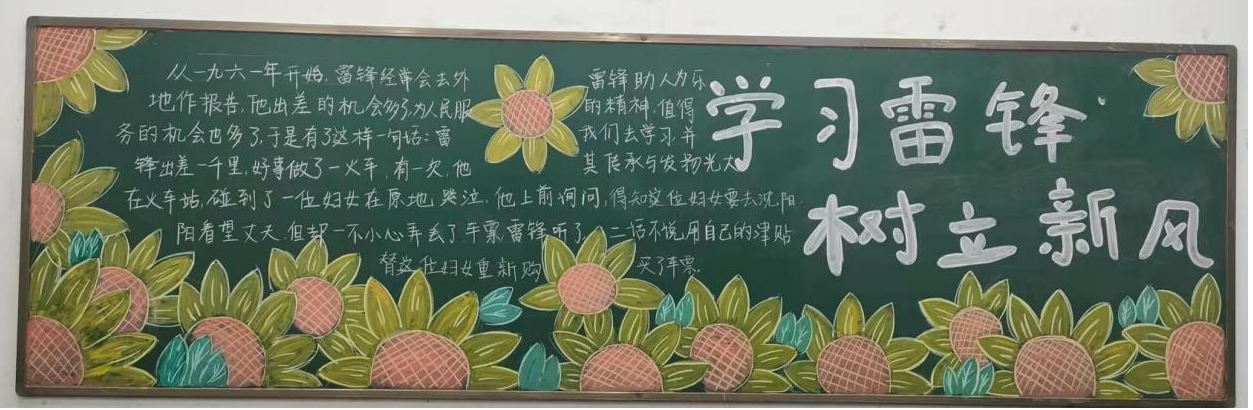 从一九六一年开始,雷锋经常会去外
地作报告,他出差的机会多了,为人民服
务的机会也多了,于是有了这样一句话:雷
锋出差一千里,好事做了一火车,有一次,他
在火车站,碰到了一位妇女在原地哭泣,他上前询问,得知这位妇女要去沈阳
阳看望丈夫,但却一不小心弄丢了车票,雷锋听了,二话不说用自己的津贴
替这位妇女重新购买了车票.
雷锋助人为乐
的精神,值得
我们去学习,并
其传承与发扬光大
学习雷锋
树立新风